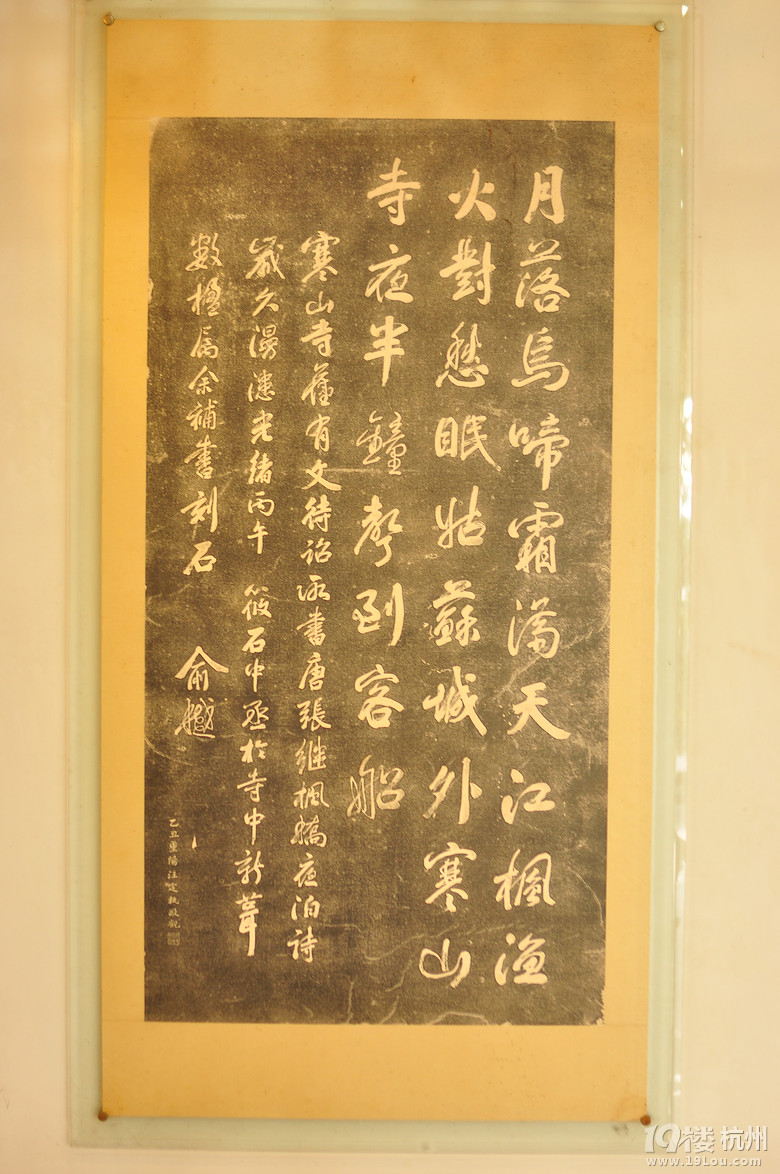 月落烏啼霜滿天江楓漁
火對愁眠姑蘇城外寒山
寺夜半鐘聲到客船
寒山寺舊有文待詔所書唐張繼楓橋夜泊詩
歲久漫漶光緒丙午 筱石中丞於寺中新葺
數楹屬余補書刻石 俞樾
乙丑重陽汪定執敬觀
19楼杭州
www.19lou.com